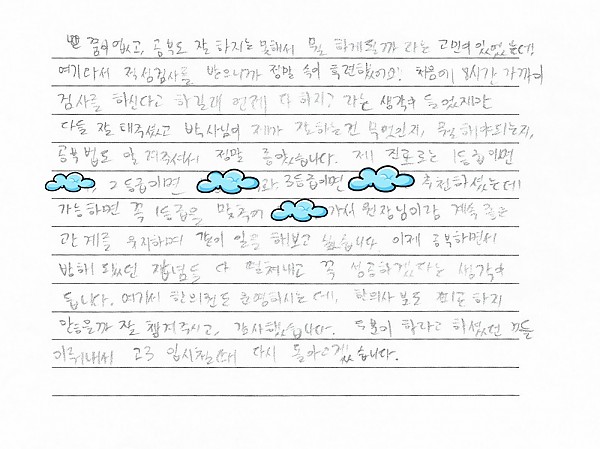 꿈이 없고, 공부도 잘 하지는 못해서 뭘 하게 될까 라는 고민이 있었는데!
여기 와서 적성검사를 받으니까 정말 속이 후련했어요! 처음에 4시간 가까이
검사를 하신다고 하길래 언제 다 하지? 라는 생각이 들었지만
다들 잘 대해주셨고 박사님이 제가 잘하는건 무엇인지, 뭘 해야되는지,
공부법도 알려주셔서 정말 좋았습니다. 제 진로는 1등급이면
2등급이면 과 3등급이면 추천하셨는데
가능하면 꼭 1등급을 맞춰 가서 원장님이랑 계속 좋은
관계를 유지하며 같이 일을 해보고 싶습니다. 이제 공부하면서
방해 되었던 잡념들 다 떨쳐내고 꼭 성공하겠다는 생각이
듭니다. 여기서 한의원도 운영하시는데, 한의사 분도 피곤 하지
않을까 잘 챙겨주시고, 감사했습니다. 두분이 하라고 하셨던 것들
이뤄내서 고3 입시철에 다시 돌아오겠습니다.